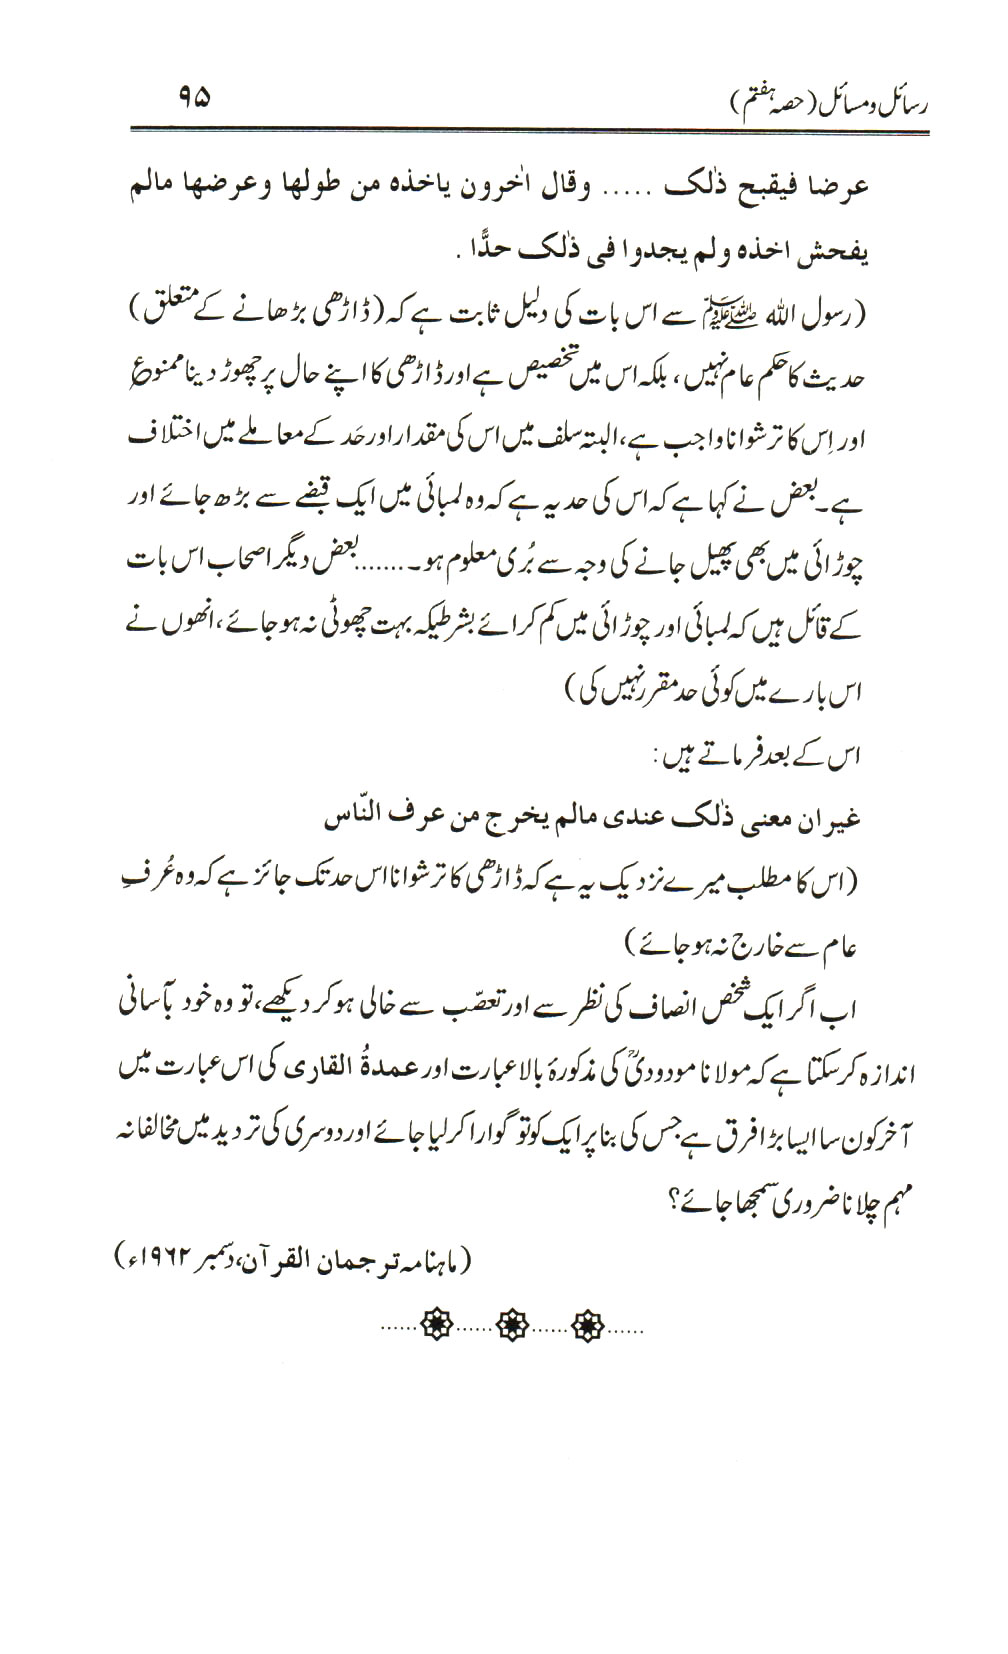 رسائل و مسائل (حصہ ہفتم)
۹۵
عرضا فیقبح ذٰلک ..... وقال اٰخرون یاخذہ من طولها وعرضها مالم
یفحش اخذہ ولم یجدوا فی ذٰلک حدًّا .
(رسول اللہ ﷺ سے اس بات کی دلیل ثابت ہے کہ (ڈاڑھی بڑھانے کے متعلق)
حدیث کا حکم عام نہیں، بلکہ اس میں تخصیص ہے اور ڈاڑھی کا اپنے حال پر چھوڑ دینا ممنوع
اور اِس کا ترشوانا واجب ہے، البتہ سلف میں اس کی مقدار اور حَد کے معاملے میں اختلاف
ہے۔ بعض نے کہا ہے کہ اس کی حد یہ ہے کہ وہ لمبائی میں ایک قبضے سے بڑھ جائے اور
چوڑائی میں بھی پھیل جانے کی وجہ سے بُری معلوم ہو۔.......بعض دیگر اصحاب اس بات
کے قائل ہیں کہ لمبائی اور چوڑائی میں کم کرائے بشرطیکہ بہت چھوٹی نہ ہو جائے، انھوں نے
اس بارے میں کوئی حد مقرر نہیں کی)
اس کے بعد فرماتے ہیں:
غیر ان معنی ذٰلک عندی مالم یخرج من عرف النّاس
(اس کا مطلب میرے نزدیک یہ ہے کہ ڈاڑھی کا ترشوانا اس حد تک جائز ہے کہ وہ عُرفِ
عام سے خارج نہ ہو جائے)
اب اگر ایک شخص انصاف کی نظر سے اور تعصّب سے خالی ہو کر دیکھے، تو وہ خود بآسانی
اندازہ کر سکتا ہے کہ مولانا مودودیؒ کی مذکورۂ بالا عبارت اور عمدۃُ القاری کی اس عبارت میں
آخر کون سا ایسا بڑا فرق ہے جس کی بنا پر ایک کو تو گوارا کر لیا جائے اور دوسری کی تردید میں مخالفانہ
مہم چلانا ضروری سمجھا جائے؟
(ماہنامہ ترجمان القرآن، دسمبر ۱۹۶۲ء)